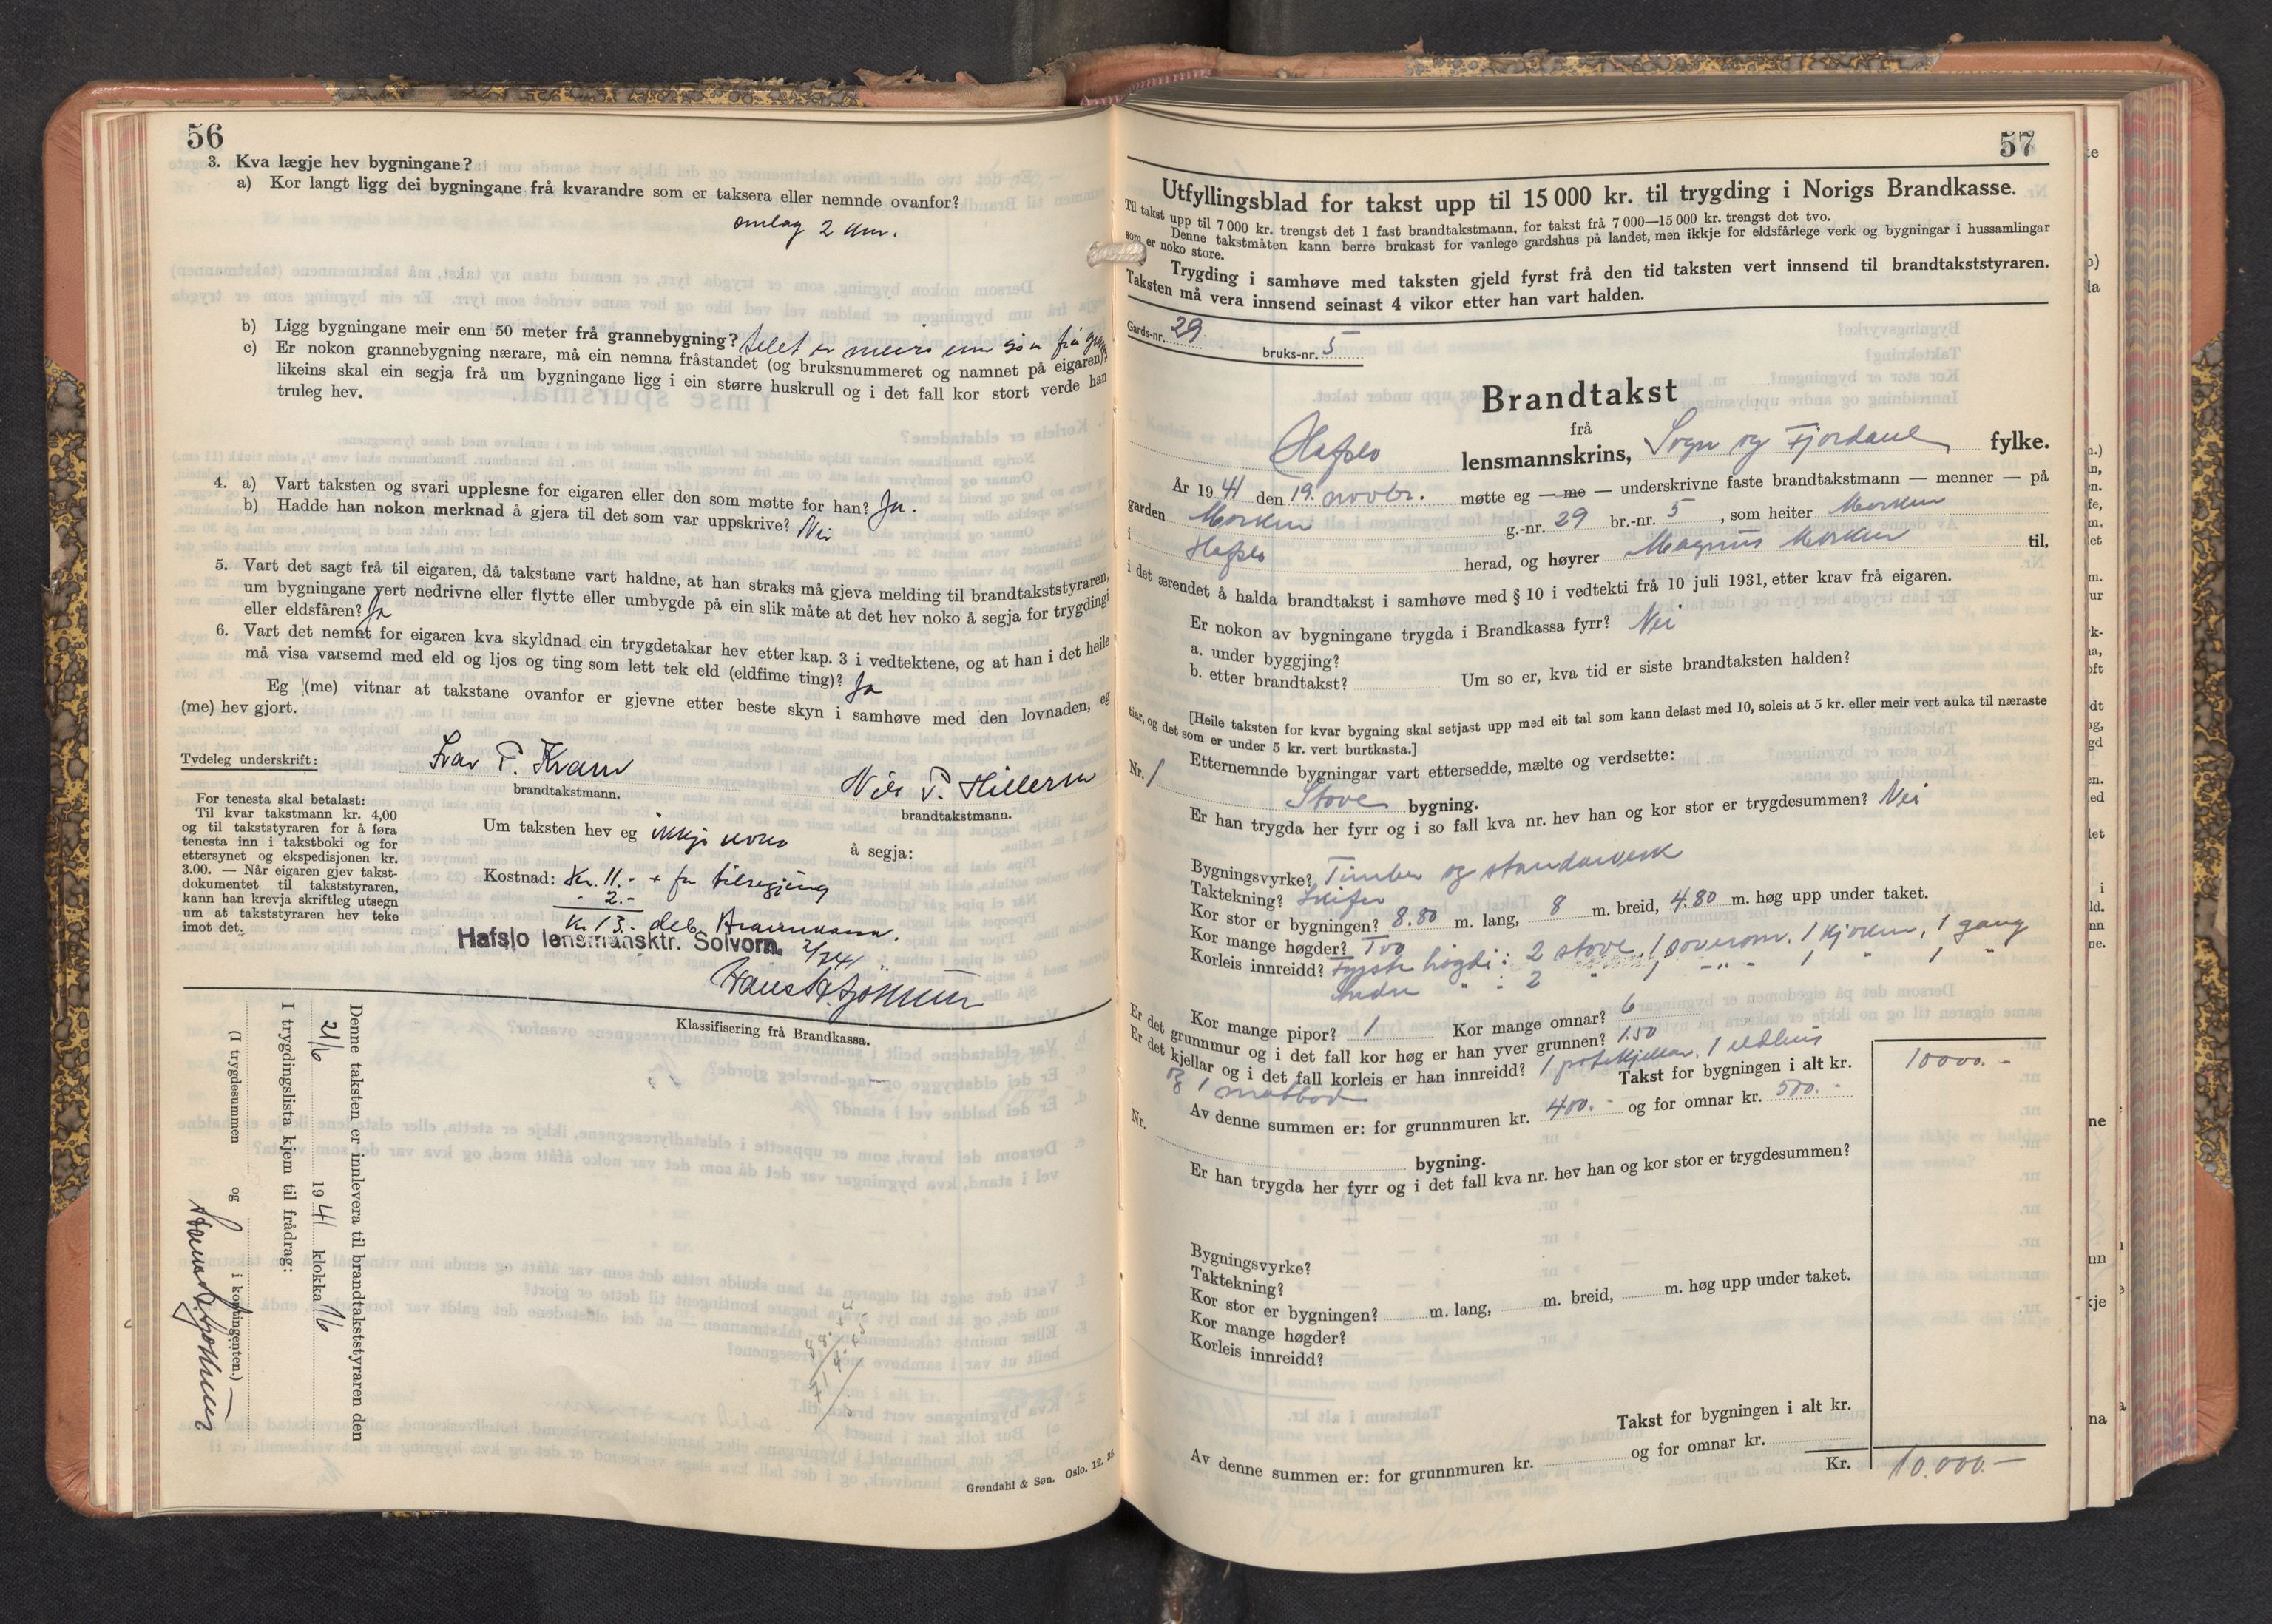 56
3. Kva lægje hev bygningane?
a) Kor langt ligg dei bygningane frå kvarandre som er taksera eller nemnde ovanfor?
omlag 2 km.
b) Ligg bygningane meir enn 50 meter frå grannebygning?
c) Er nokon grannebygning nærare, må ein nemna fråstandet (og bruksnummeret og namnet på eigaren),
likeins skal ein segja frå um bygningane ligg i ein større huskrull og i det fall kor stort verde han
truleg hev.
4. a) Vart taksten og svari upplesne for eigaren eller den som møtte for han? Ja.
b) Hadde han nokon merknad å gjera til det som var uppskrive? Nei
5. Vart det sagt frå til eigaren, då takstane vart haldne, at han straks må gjeva melding til brandtakststyraren,
um bygningane vert nedrivne eller flytte eller umbygde på ein slik måte at det hev noko å segja for trygdingi
eller eldsfåren? Ja
6. Vart det nemnt for eigaren kva skyldnad ein trygdetakar hev etter kap. 3 i vedtektene, og at han i det heile
må visa varsemd med eld og ljos og ting som lett tek eld (eldfime ting)? Ja
Eg (me) vitnar at takstane ovanfor er gjevne etter beste skyn i samhøve med den lovnaden, eg
(me) hev gjort.
Tydeleg underskrift:
Ivar P. Kram
brandtakstmann.
Nils P. Hillern
brandtakstmann.
For tenesta skal betalast:
Til kvar takstmann kr. 4,00
og til takststyraren for å føra
tenesta inn i takstboki og for
ettersynet og ekspedisjonen kr.
3.00. — Når eigaren gjev takst-
dokumentet til takststyraren,
kann han krevja skriftleg utsegn
um at takststyraren hev teke
imot det.
Um taksten hev eg ikkje noko å segja:
Kostnad: Kr. 11.- + for tilsegjing
- 2.-
Kr. 13.- deb.
Hafslo lensmansktr. Solvorn.
Klassifisering frå Brandkassa.
Denne taksten er innlevera til brandtakststyraren den
21/6 1941 klokka 16
I trygdingslista kjem til frådrag:
(I trygdesummen og i kontingenten.)
Grøndahl & Søn. Oslo. 12. 35.
57
Utfyllingsblad for takst upp til 15 000 kr. til trygding i Norigs Brandkasse.
Til takst upp til 7 000 kr. trengst det 1 fast brandtakstmann, for takst frå 7 000—15 000 kr. trengst det tvo.
Denne takstmåten kann berre brukast for vanlege gardshus på landet, men ikkje for eldsfårlege verk og bygningar i hussamlingar
som er noko store.
Trygding i samhøve med taksten gjeld fyrst frå den tid taksten vert innsend til brandtakststyraren.
Taksten må vera innsend seinast 4 vikor etter han vart halden.
Gards-nr. 29
bruks-nr. 5
Brandtakst
frå
Hafslo lensmannskrins, Sogn og Fjordane fylke.
År 1941 den 19. novbr. møtte eg — me — underskrivne faste brandtakstmann — menner — på
garden Morken g.-nr. 29 br.-nr. 5, som heiter Morken
i Hafslo herad, og høyrer Magnus Morken til,
i det ærendet å halda brandtakst i samhøve med § 10 i vedtekti frå 10 juli 1931, etter krav frå eigaren.
Er nokon av bygningane trygda i Brandkassa fyrr? Nei
a. under byggjing?
b. etter brandtakst? Um so er, kva tid er siste brandtaksten halden?
[Heile taksten for kvar bygning skal setjast upp med eit tal som kann delast med 10, soleis at 5 kr. eller meir vert auka til næraste
tiar, og det som er under 5 kr. vert burtkasta.]
Etternemnde bygningar vart ettersedde, mælte og verdsette:
Nr. 1 Stove bygning.
Er han trygda her fyrr og i so fall kva nr. hev han og kor stor er trygdesummen? Nei
Bygningsvyrke? Timber og standarverk
Taktekning? Skifer
Kor stor er bygningen? 8.80 m. lang, 8 m. breid, 4.80 m. høg upp under taket.
Kor mange høgder? Tvo
Korleis innreidd? Fyrste høgdi: 2 stove, 1 soverom, 1 kjøken, 1 gang
Andre " : 2 " 1 -"- 1 " 1 "
Kor mange pipor? 1 Kor mange omnar? 6
Er det grunnmur og i det fall kor høg er han yver grunnen? 1.50
Er det kjellar og i det fall korleis er han innreidd? 1 potetkjellar, 1 eldhus
og 1 matbod
Takst for bygningen i alt kr. 10000.-
Av denne summen er: for grunnmuren kr. 400.- og for omnar kr. 500.-
Nr. bygning.
Er han trygda her fyrr og i det fall kva nr. hev han og kor stor er trygdesummen?
Bygningsvyrke?
Taktekning?
Kor stor er bygningen? m. lang, m. breid, m. høg upp under taket.
Kor mange høgder?
Korleis innreidd?
Takst for bygningen i alt kr.
Av denne summen er: for grunnmuren kr. og for omnar kr.
Kr. 10.000.-